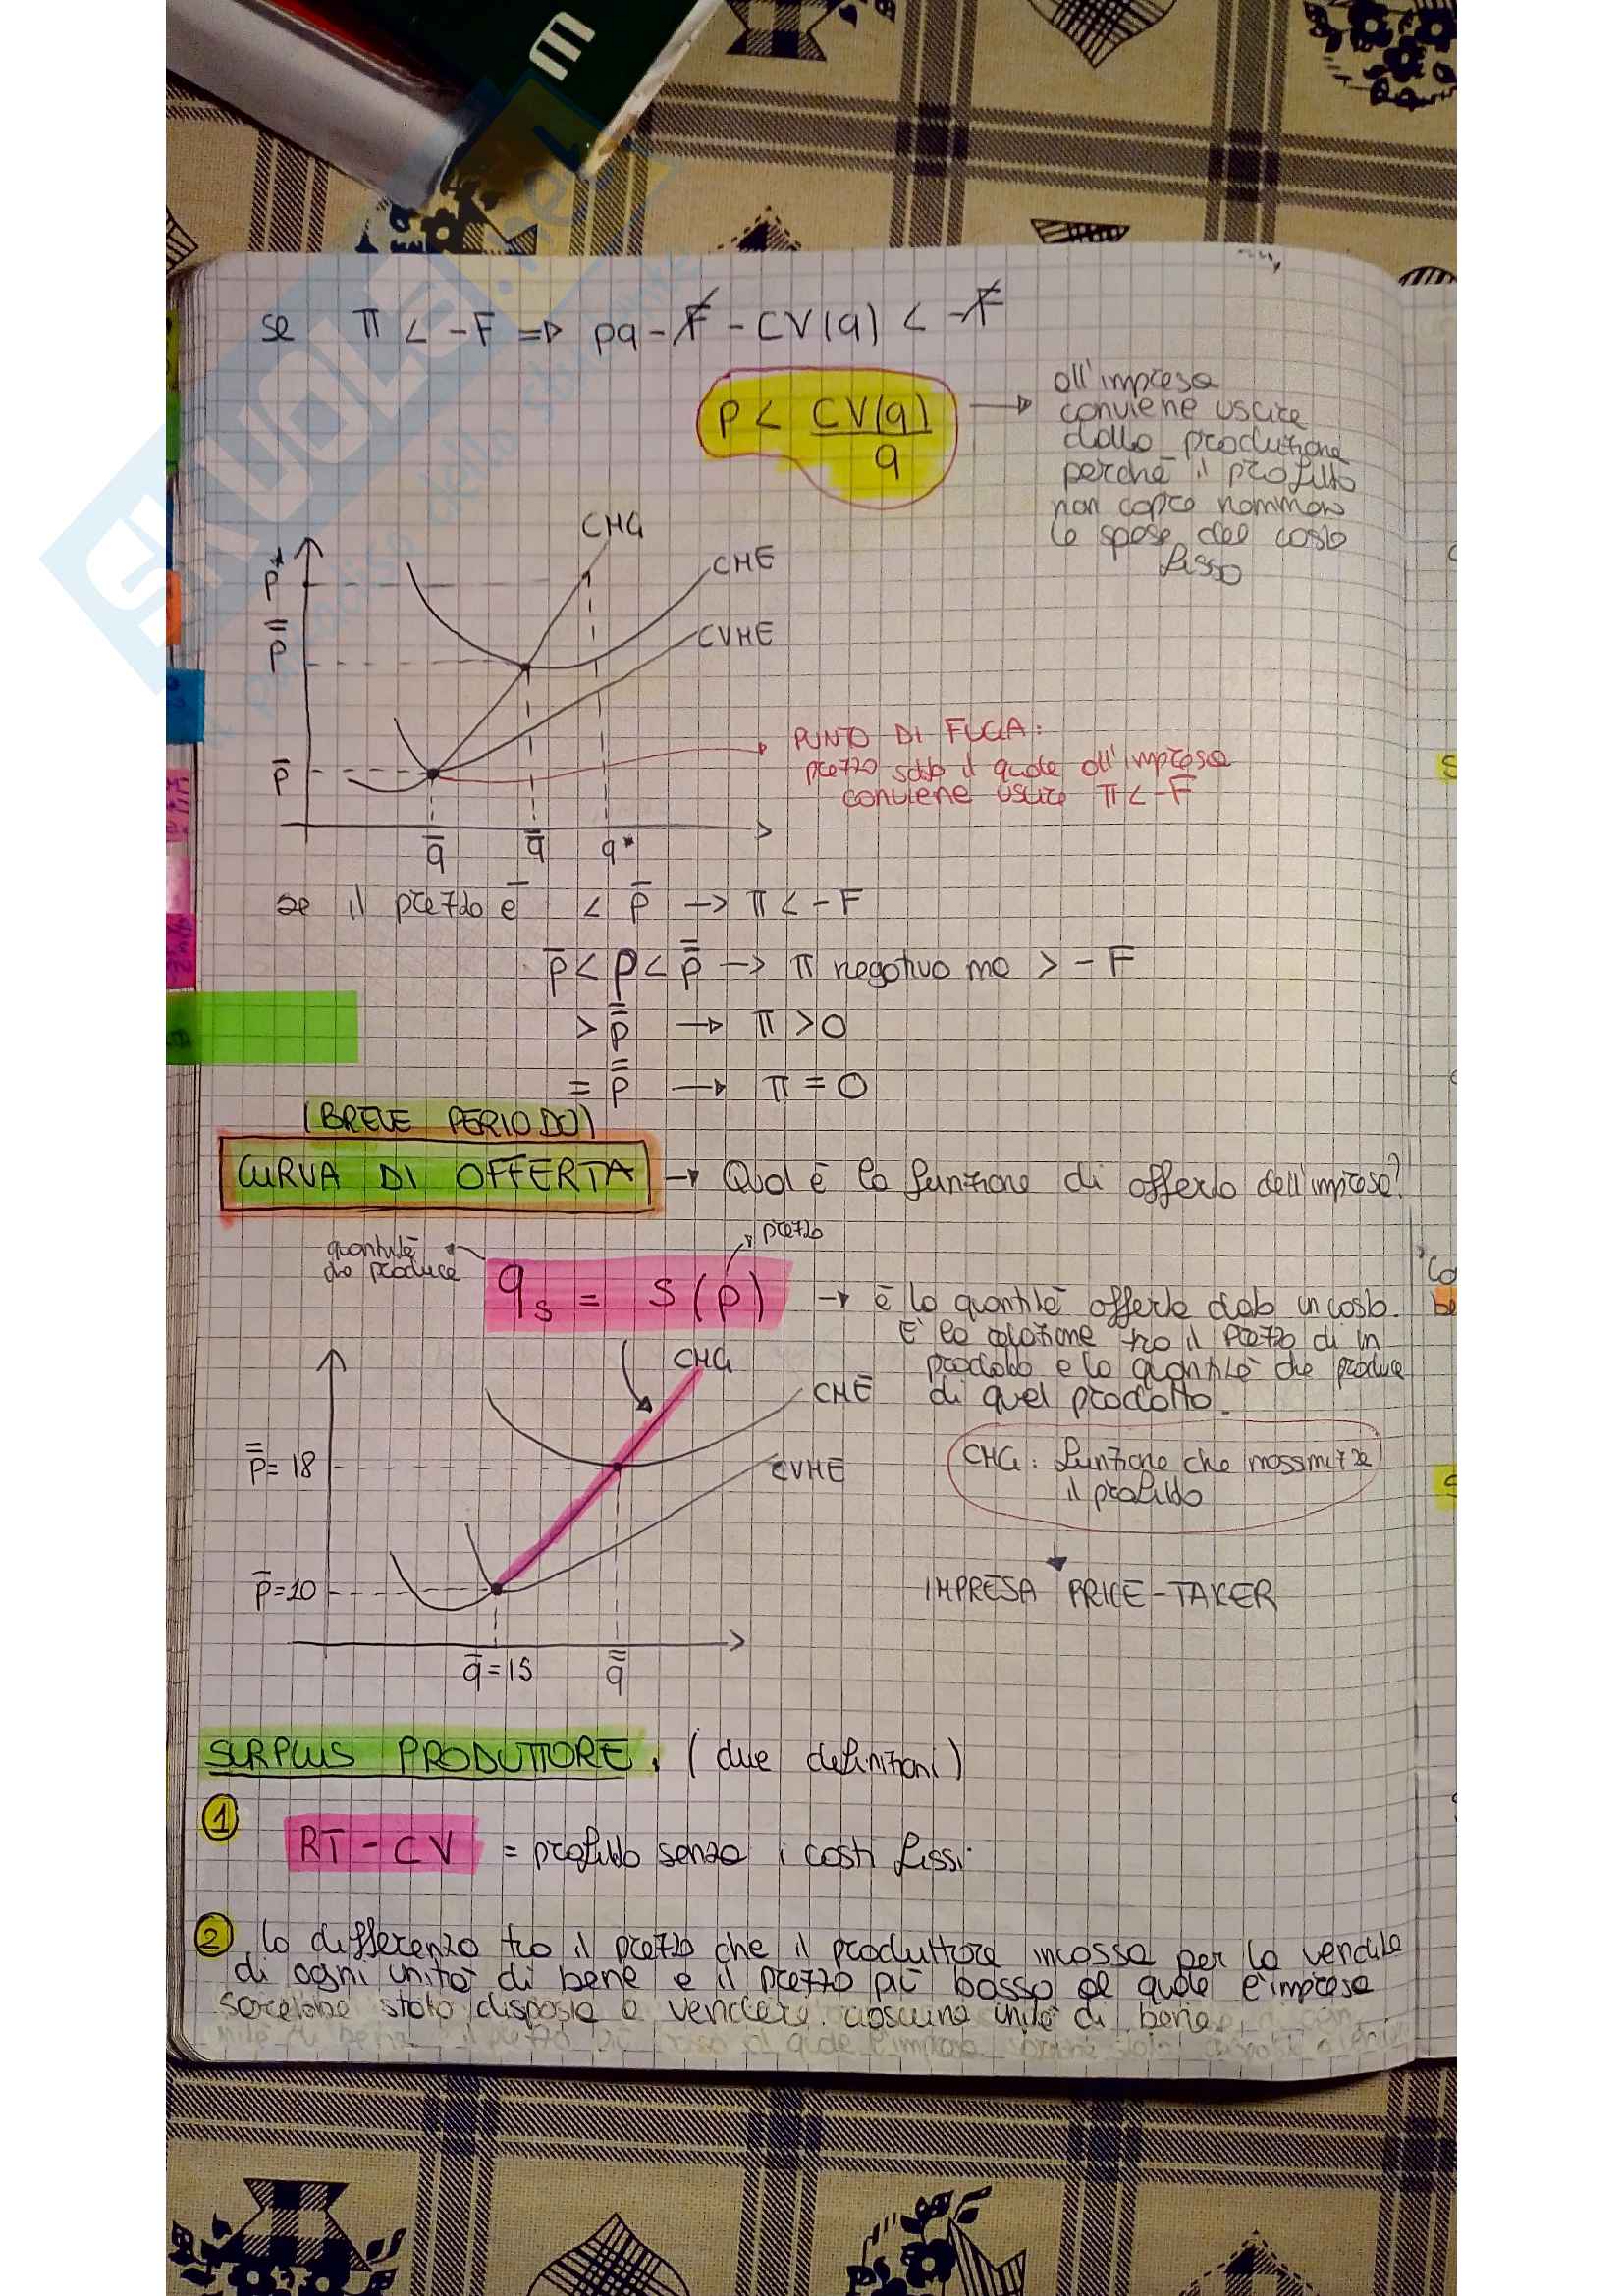 se π < -F => pq - F - CV(q) < -F
p < CV(q)
q
all'impresa
conviene uscire
dalla produzione
perché il profitto
non copre nemmeno
le spese del costo
fisso
CMG
CME
CVME
p*
p̿
p̅
q̅
q̿
q*
PUNTO DI FUGA:
prezzo sotto il quale all'impresa
conviene uscire π < -F
se il prezzo è < p̅ -> π < -F
p̅ < p < p̿ -> π negativo ma > -F
> p̿ -> π > 0
= p̿ -> π = 0
(BREVE PERIODO)
CURVA DI OFFERTA -> Qual è la funzione di offerta dell'impresa?
quantità
che produce
prezzo
qs = s(p) -> è la quantità offerta dato un costo.
E' la relazione tra il prezzo di un
prodotto e la quantità che produce
di quel prodotto.
CMG
CME
CVME
p̿ = 18
p̅ = 10
q̅ = 15
q̿
CMG: funzione che massimizza
il profitto
IMPRESA PRICE-TAKER
SURPLUS PRODUTTORE. (due definizioni)
1
RT - CV = profitto senza i costi fissi.
2 la differenza tra il prezzo che il produttore incassa per la vendita
di ogni unità di bene e il prezzo più basso al quale l'impresa
sarebbe stata disposta a vendere ciascuna unità di bene.
SKUOLA.net
il paradiso dello studente